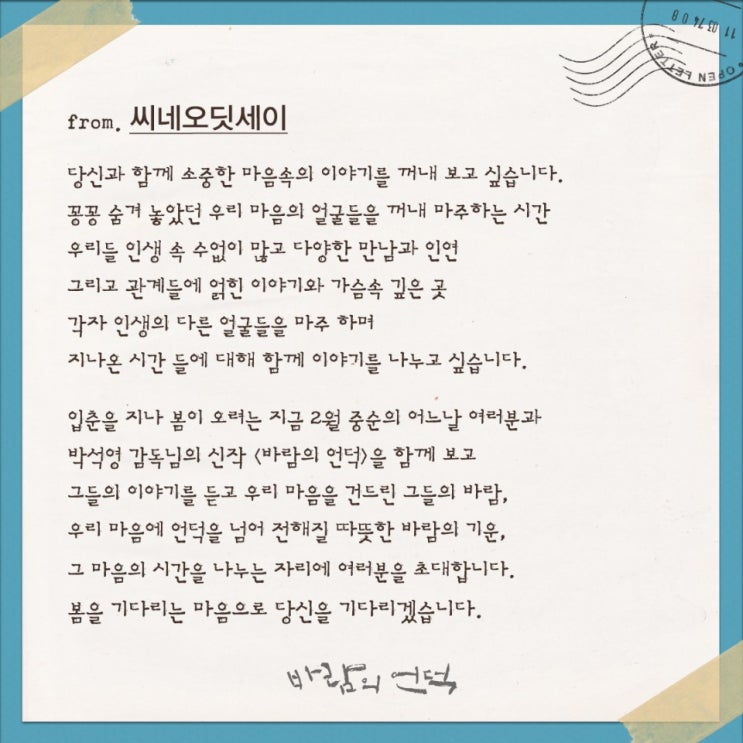 11 03 74 0 8
OPEN LETTER
from. 씨네오딧세이
당신과 함께 소중한 마음속의 이야기를 꺼내 보고 싶습니다.
꽁꽁 숨겨 놓았던 우리 마음의 얼굴들을 꺼내 마주하는 시간
우리들 인생 속 수없이 많고 다양한 만남과 인연
그리고 관계들에 얽힌 이야기와 가슴속 깊은 곳
각자 인생의 다른 얼굴들을 마주 하며
지나온 시간 들에 대해 함께 이야기를 나누고 싶습니다.
입춘을 지나 봄이 오려는 지금 2월 중순의 어느날 여러분과
박석영 감독님의 신작 <바람의 언덕>을 함께 보고
그들의 이야기를 듣고 우리 마음을 건드린 그들의 바람,
우리 마음에 언덕을 넘어 전해질 따뜻한 바람의 기운,
그 마음의 시간을 나누는 자리에 여러분을 초대합니다.
봄을 기다리는 마음으로 당신을 기다리겠습니다.
바람의 언덕